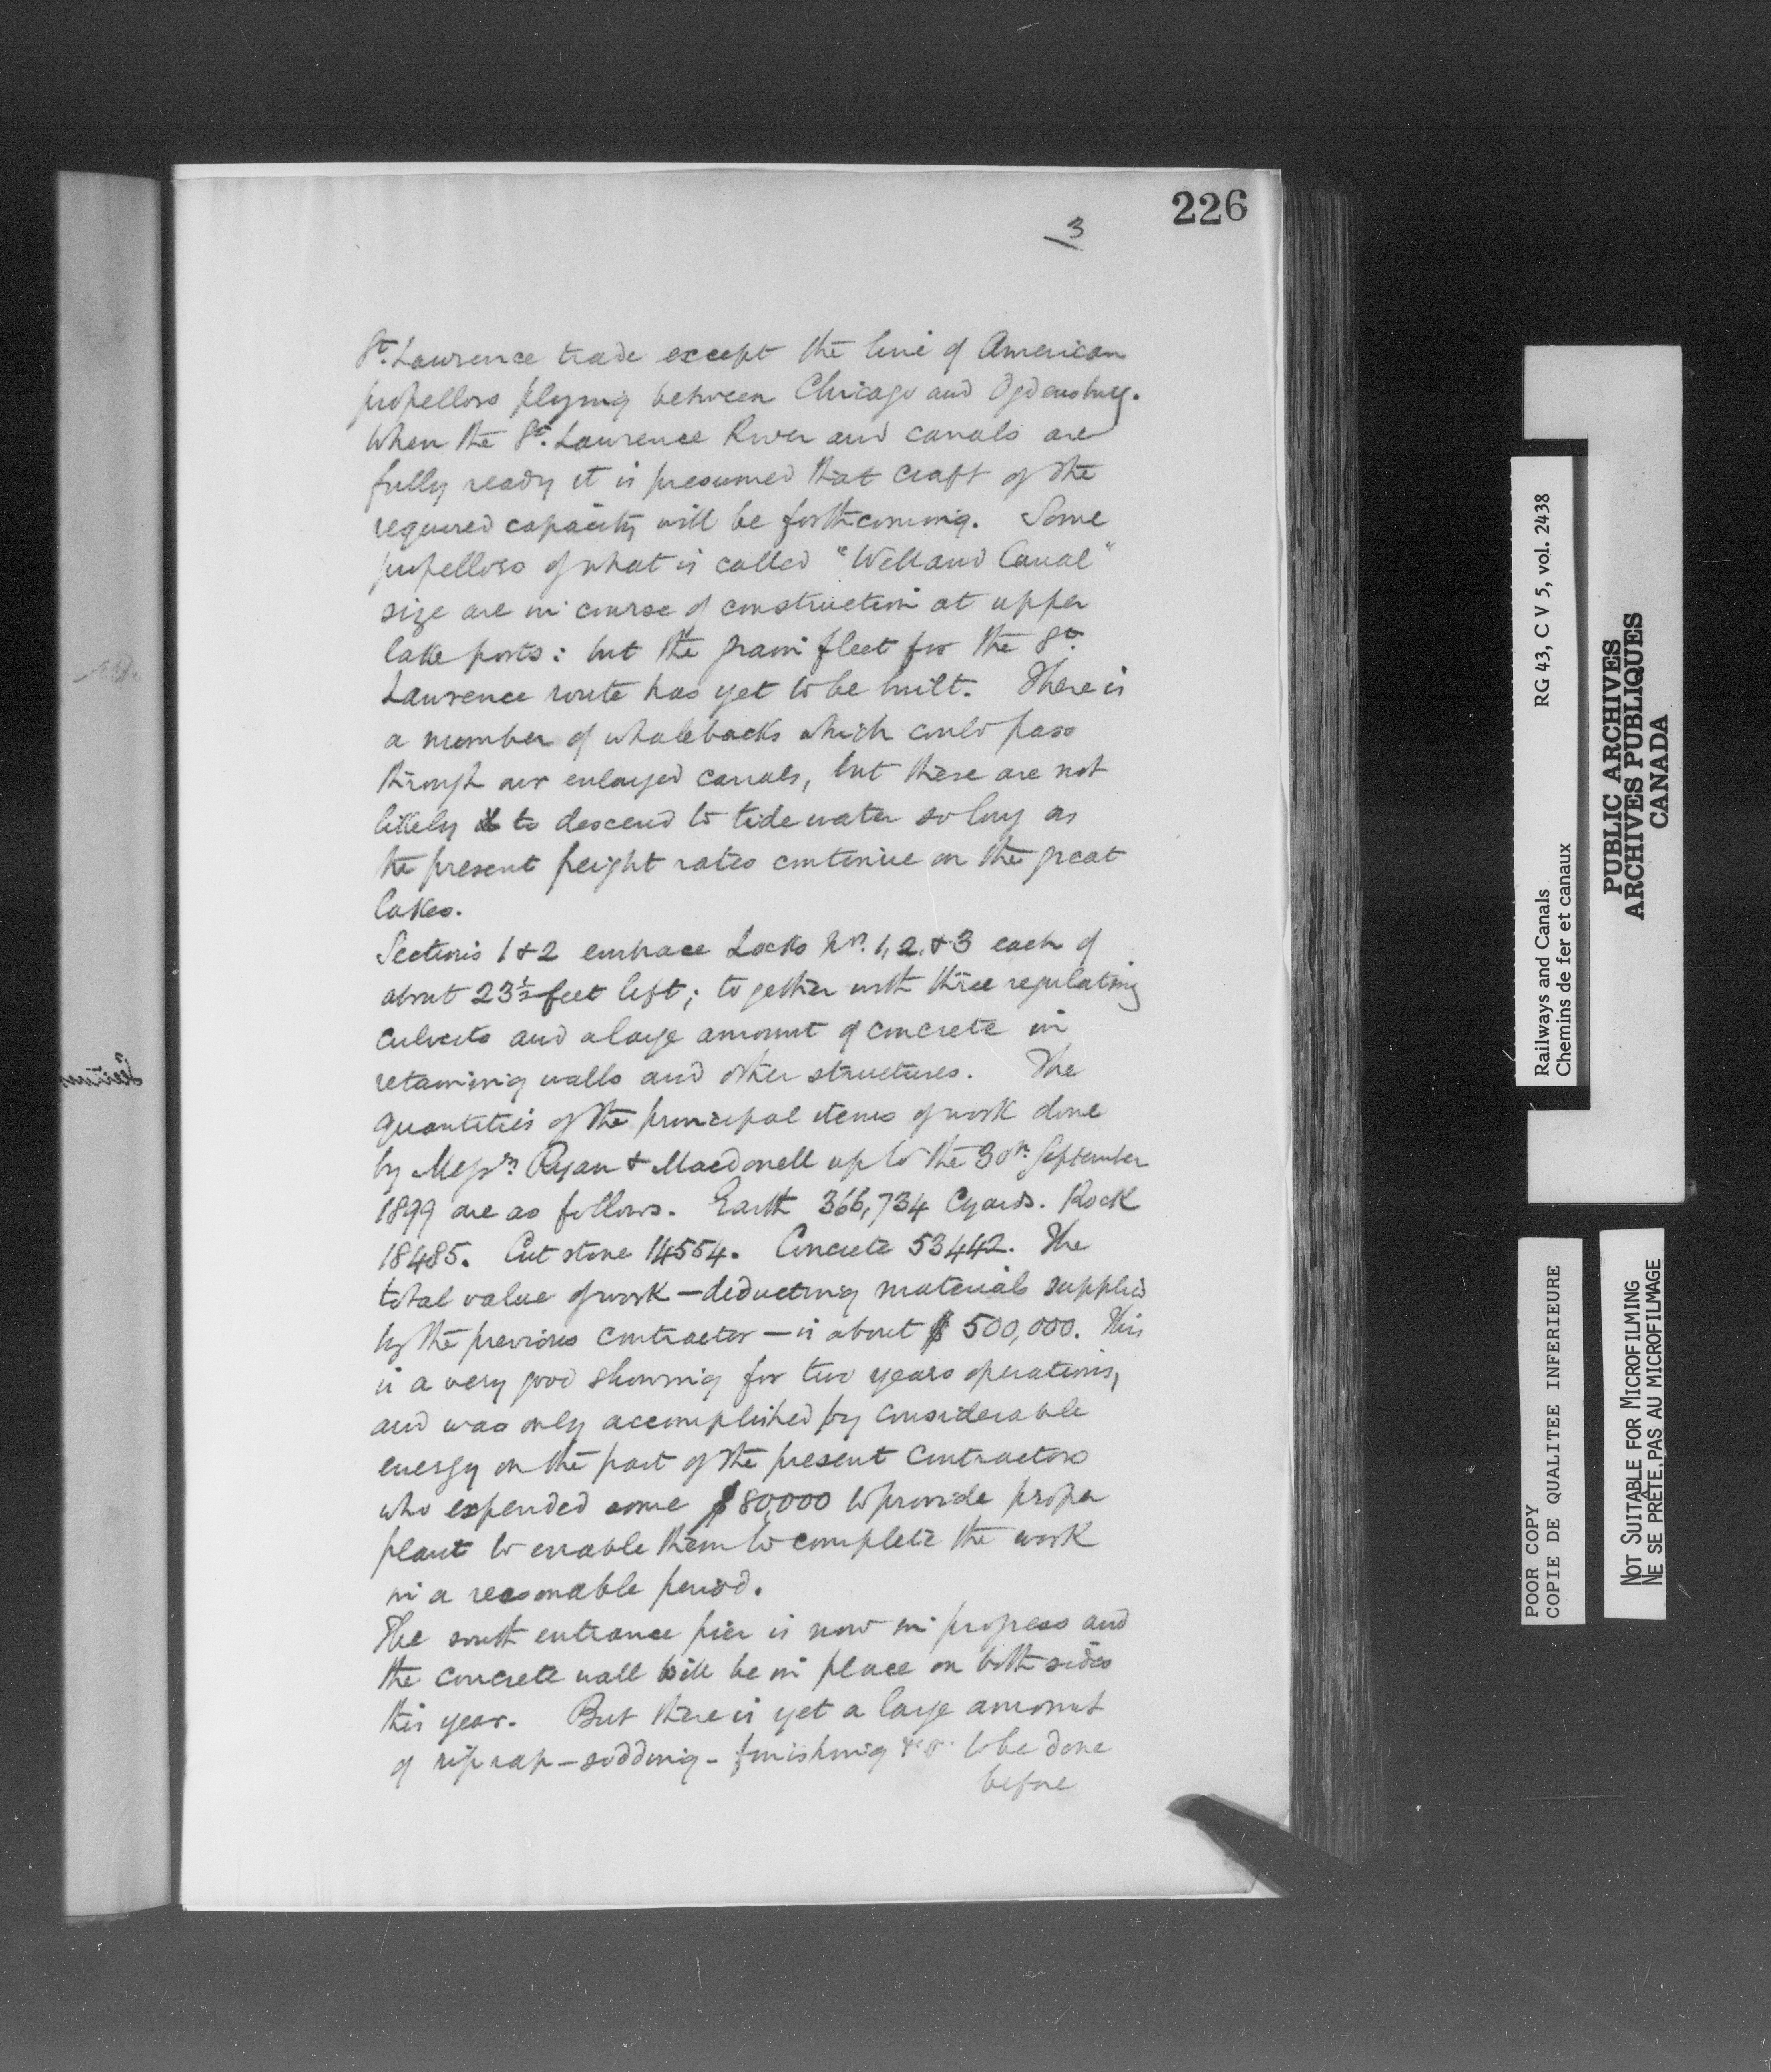 226
3
St. Lawrence trade except the line of American
propellors plying between Chicago and Ogdensburg.
When the St. Lawrence River and canals are
fully ready it is presumed that craft of the
required capacity will be forthcoming. Some
propellors of what is called "Welland Canal"
size are in course of construction at upper
lake ports: but the grain fleet for the St.
Lawrence route has yet to be built. There is
a number of whalebacks which could pass
through our enlarged canals, but these are not
likely to descend to tide water so long as
the present freight rates continue on the great
lakes.
Sections 1 & 2 embrace Locks Nos. 1, 2, & 3 each of
about 23½ feet lift; together with three regulating
culverts and a large amount of concrete in
retaining walls and other structures. The
quantities of the principal items of work done
by Messrs Ryan & Macdonell up to the 30th September
1899 are as follows. Earth 366,734 Cyards. Rock
18485. Cut stone 14554. Concrete 53442. The
total value of work — deducting materials supplied
by the previous contractor — is about $500,000. This
is a very good showing for two years operations,
and was only accomplished by considerable
energy on the part of the present contractors
who expended some $80,000 to provide proper
plant to enable them to complete the work
in a reasonable period.
The south entrance pier is now in progress and
the concrete wall will be in place on both sides
this year. But there is yet a large amount
of rip rap - sodding - finishing &c to be done
before
Railways and Canals RG 43, C V 5, vol. 2438
Chemins de fer et canaux
PUBLIC ARCHIVES
ARCHIVES PUBLIQUES
CANADA
POOR COPY
COPIE DE QUALITEE INFERIEURE
NOT SUITABLE FOR MICROFILMING
NE SE PRÊTE PAS AU MICROFILMAGE